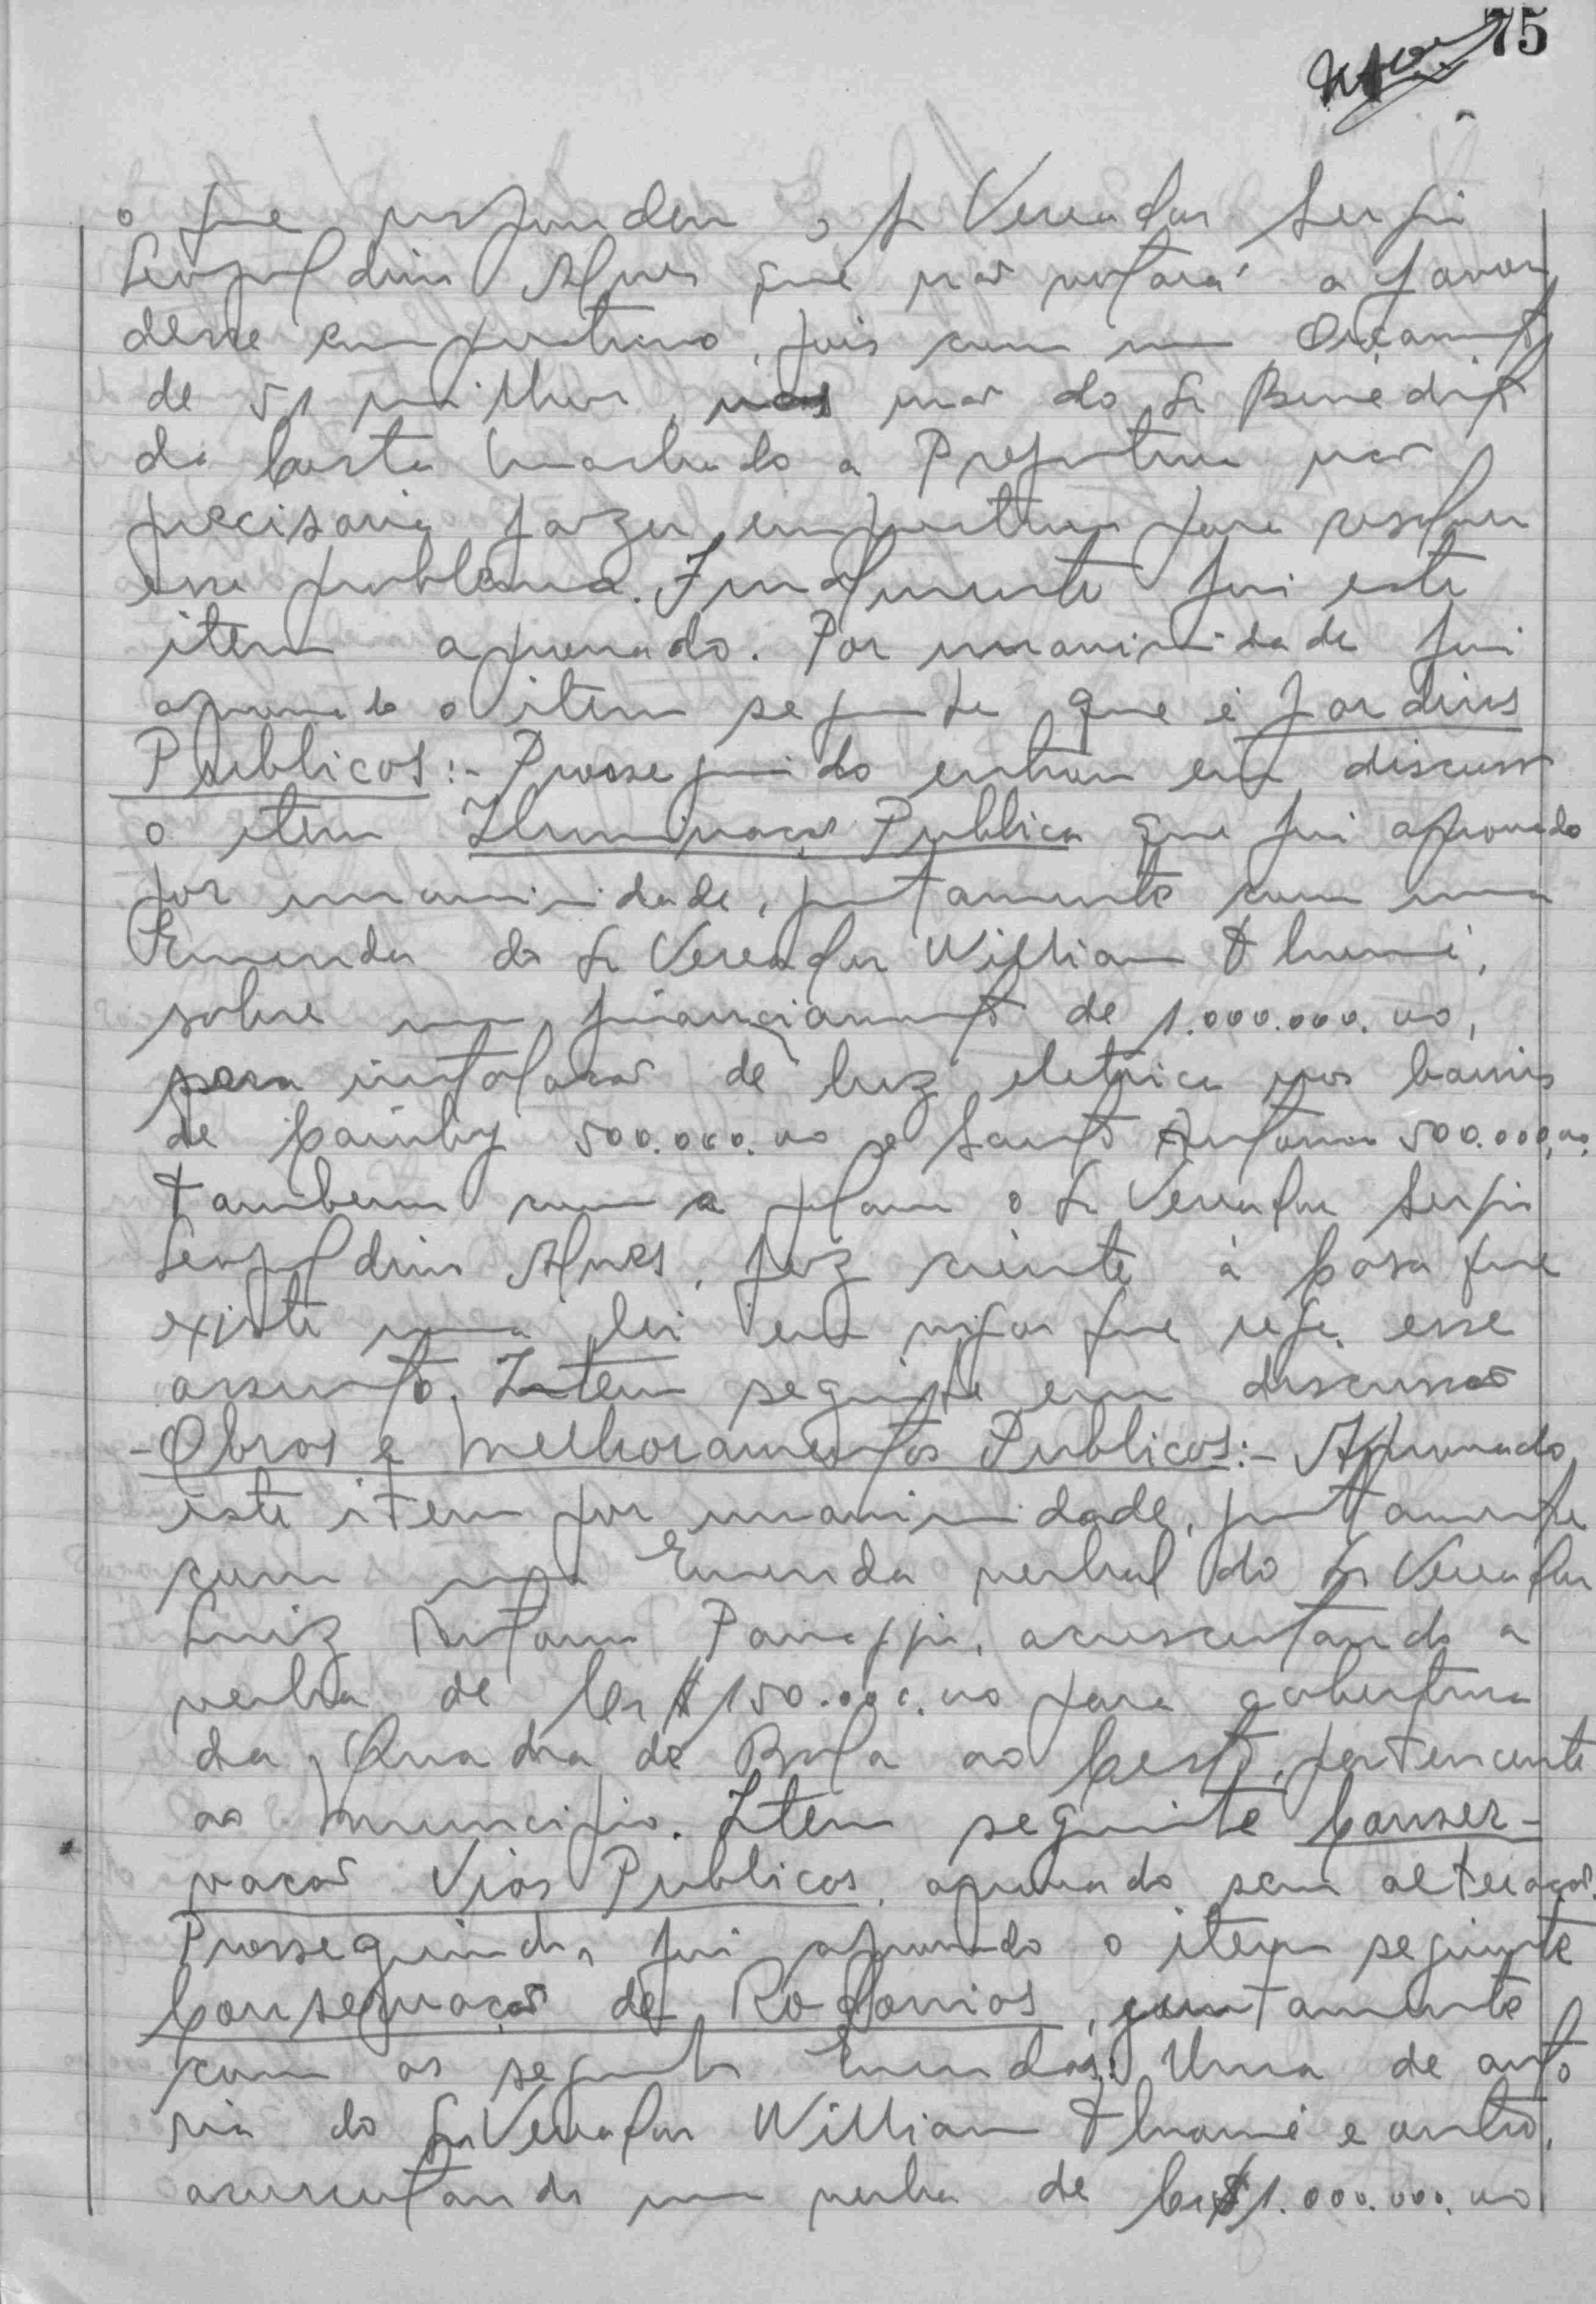 75
o que respondeu o Sr Vereador Sergio
Leopoldino Alves que não votará a favor
desse emprestimo, pois com um Orçamento
de 51 milhões, nas mão do Sr Benedito
da Costa Machado a Prefeitura não
precisaria fazer emprestimo para resolver
esse problema. Finalmente foi este
item aprovado. Por unanimidade foi
aprovado o item seguinte que é Jardins
Publicos:- Prosseguido entrou em discussão
o item Iluminação Publica que foi aprovado
por unanimidade, juntamente com uma
Emenda do Sr Vereador William
sobre um financiamento de 1.000.000.00,
para instalação de luz eletrica nos bairros
de Caiuby 500.000.00 e Santo Antonio 500.000,00.
Tambem com a palavra o Sr Vereador Sergio
Leopoldino Alves, fez ciente á Casa que
existe uma lei em vigor que rege esse
assunto. Item seguinte em discussão
-Obras e Melhoramentos Publicos:- Aprovado
este item por unanimidade, juntamente
com uma Emenda verbal do Sr Vereador
Luiz Antonio acrescentando a
verba de Cr$ 150.000.00 para cobertura
da Quadra de Bola ao Cesto, pertencente
ao Municipio. Item seguinte Conser-
vação Vias Publicas, aprovado sem alteração.
Prosseguindo, foi aprovado o item seguinte
Conservação de Rodovias, juntamente
com as seguinte Emendas: Uma de auto
ria do Sr Vereador William e outro,
acrescentando uma verba de Cr$ 1.000.000.00